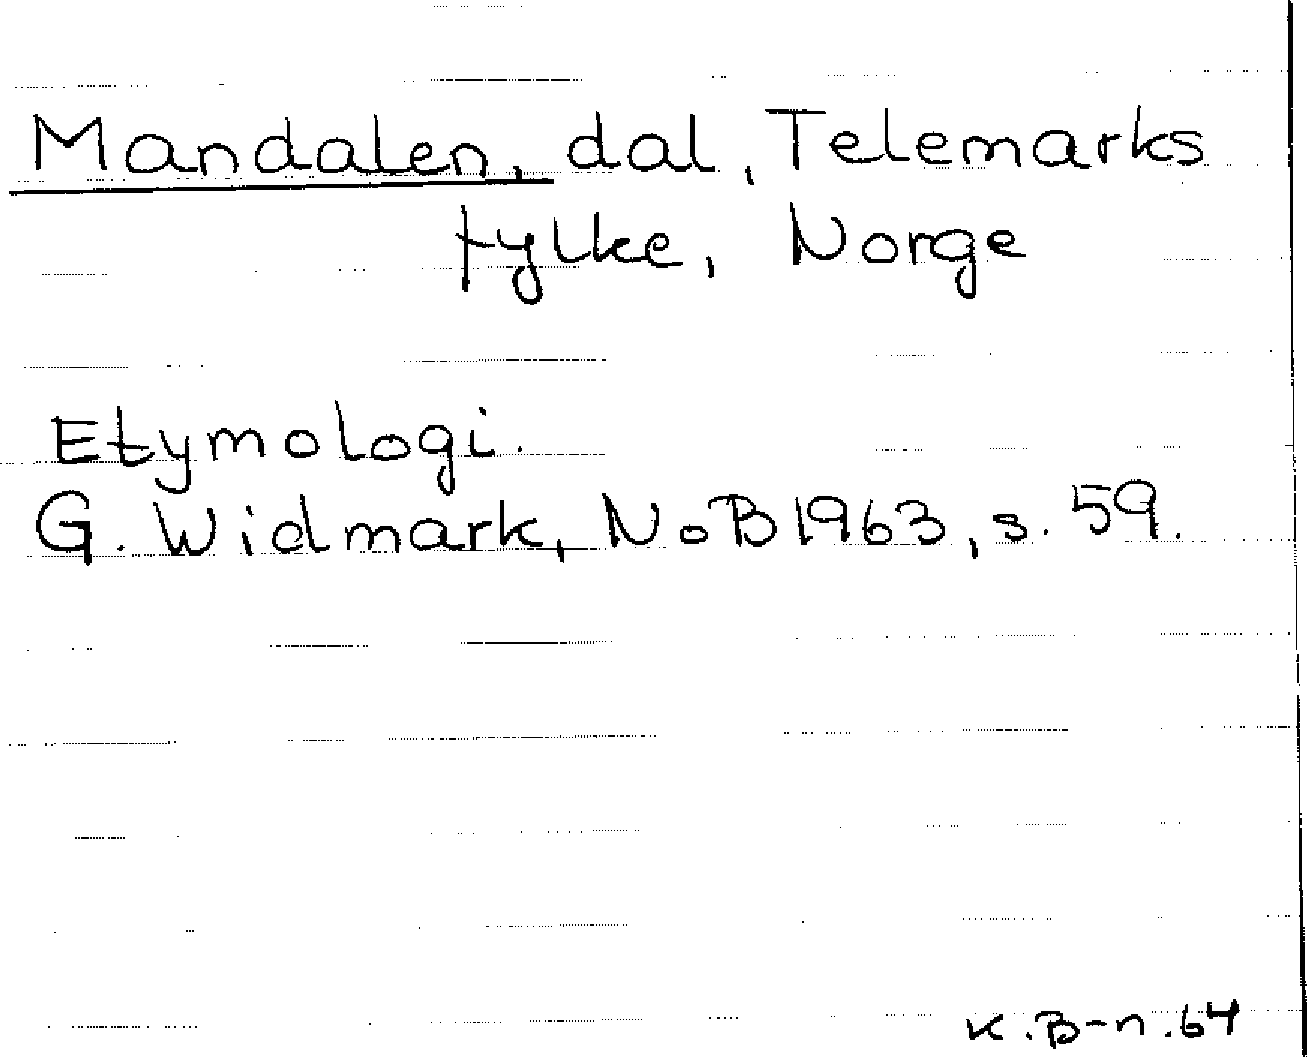 Mandalen, dal, Telemarks
fylke, Norge
Etymologi.
G. Widmark, NoB 1963, s. 59.
K.B-n.64